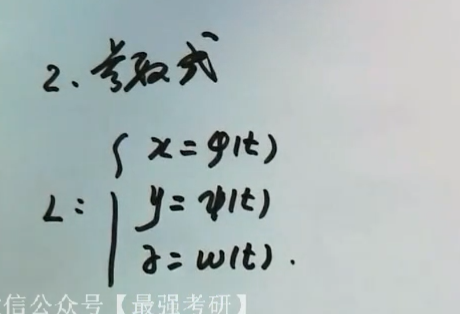 2、参数式
L: { x = φ(t)
y = ψ(t)
z = w(t) .
信公众号【最强考研】